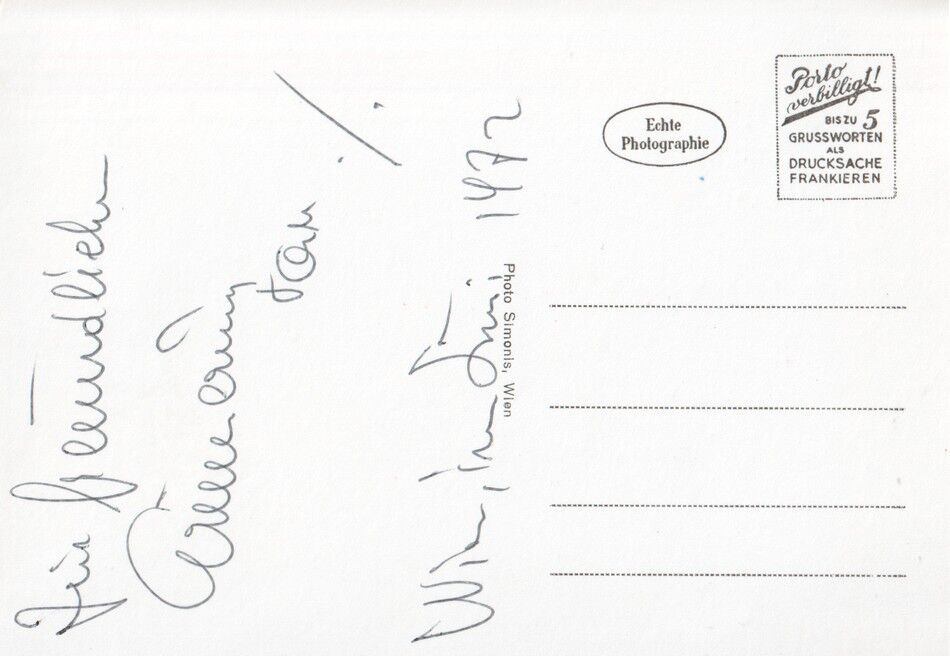 Zur freundlichen
Erinnerung
./.
Wien, im Juni 1972
Echte
Photographie
Porto
verbilligt!
BIS ZU 5
GRUSSWORTEN
ALS
DRUCKSACHE
FRANKIEREN
Photo Simonis, Wien